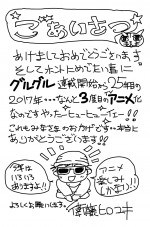 ごあいさつ
あけましておめでとうございます。
そしてホントにめでたい事に
グルグル連載開始から25年目の
2017年…なんと3度目のアニメ化
なのですやったーヒューヒューイェー!!
これもみなさまのおかげです…本当に
ありがとうございます!!
今年は
いろいろ
ありますよ!!
アニメ
楽しみ
よろしくお願いします。
衛藤ヒロユキ